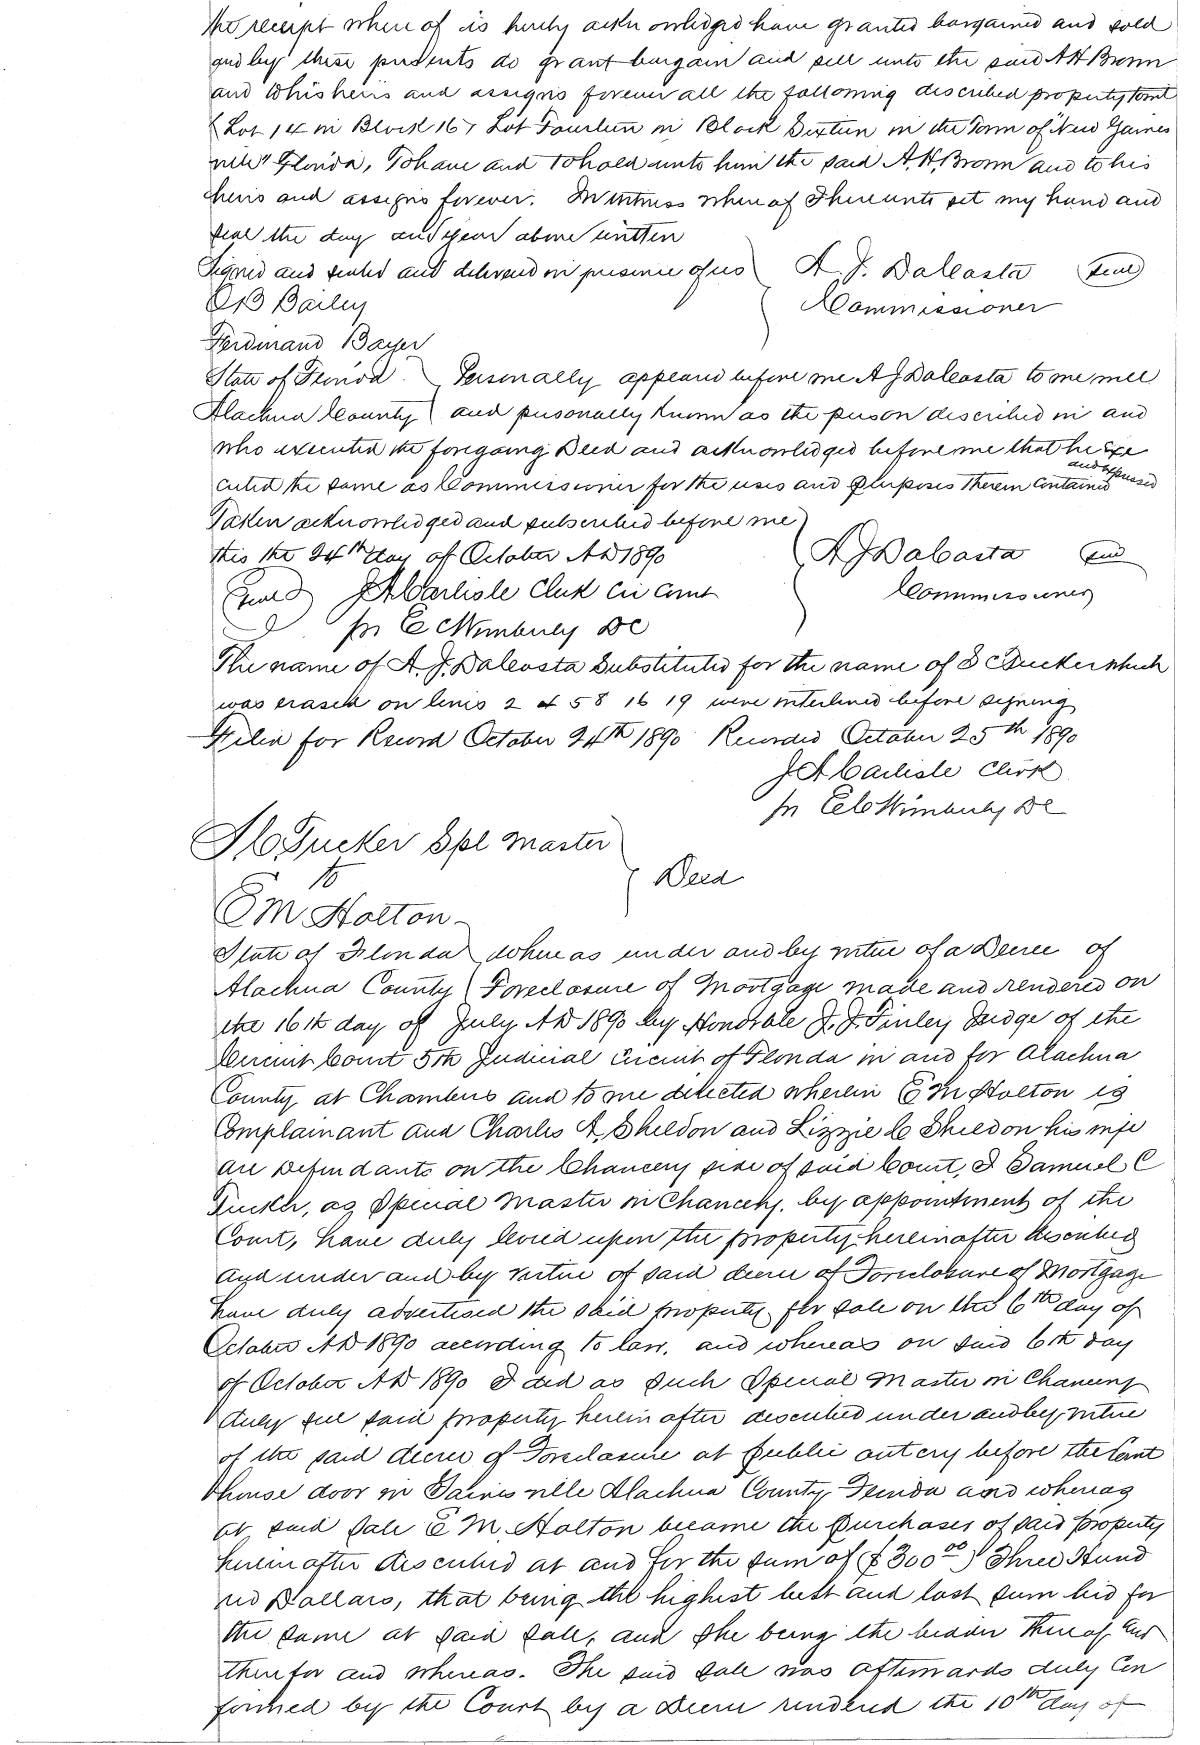 the receipt where of is hereby acknowledged have granted bargained and sold
and by these presents do grant bargain and sell unto the said A H Brown
and to his heirs and assigns forever all the following described property towit
(Lot 14 in Block 16) Lot Fourteen in Block Sixteen in the Town of "New Gaines
ville" Florida, To have and to hold unto him the said A. H. Brown and to his
heirs and assigns forever. In witness where of I hereunto set my hand and
seal the day and year above written
Signed and sealed and delivered in presence of us A. J. DaCosta (seal)
O B Bailey Commissioner
Ferdinand Bayer
State of Florida Personally appeared before me A J DaCosta to me well
Alachua County and personally known as the person described in and
who executed the foregoing Deed and acknowledged before me that he exe
cuted the same as Commissioner for the uses and purposes therein contained and expressed
Taken acknowledged and subscribed before me
this the 24th day of October AD 1890 A J DaCosta (seal)
(Seal) J A Carlisle Clerk Cir Court Commissioner
pr E C Wimberly DC
The name of A. J. DaCosta Substituted for the name of S C Tucker which
was erased on lines 2 4 5 8 16 19 were interlined before signing
Filed for Record October 24th 1890 Recorded October 25th 1890
J A Carlisle Clerk
pr E C Wimberly DC
S C Tucker Spl Master
to Deed
E M Holton
State of Florida Whereas under and by virtue of a Decree of
Alachua County Foreclosure of Mortgage made and rendered on
the 16th day of July AD 1890 by Honorable J. J. Finley Judge of the
Circuit Court 5th Judicial Circuit of Florida in and for Alachua
County at Chambers and to me directed wherein E M Holton is
Complainant and Charles A. Sheldon and Lizzie C Sheldon his wife
are Defendants on the Chancery side of said Court, I Samuel C
Tucker, as Special Master in Chancery, by appointment of the
Court, have duly levied upon the property hereinafter described
and under and by virtue of said decree of Foreclosure of Mortgage
have duly advertised the said property for sale on the 6th day of
October AD 1890 according to law, and whereas on said 6th day
of October AD 1890 I did as such Special Master in Chancery
duly sell said property herein after described under and by virtue
of the said decree of Foreclosure at public outcry before the Court
house door in Gainesville Alachua County Florida and whereas
at said sale E M. Holton became the purchaser of said property
herein after described at and for the sum of ($300 00) Three Hund
red Dollars, that being the highest best and last sum bid for
the same at said sale, and she being the bidder thereof and
therefor and whereas. The said sale was afterwards duly Con
firmed by the Court by a Decree rendered the 10th day of